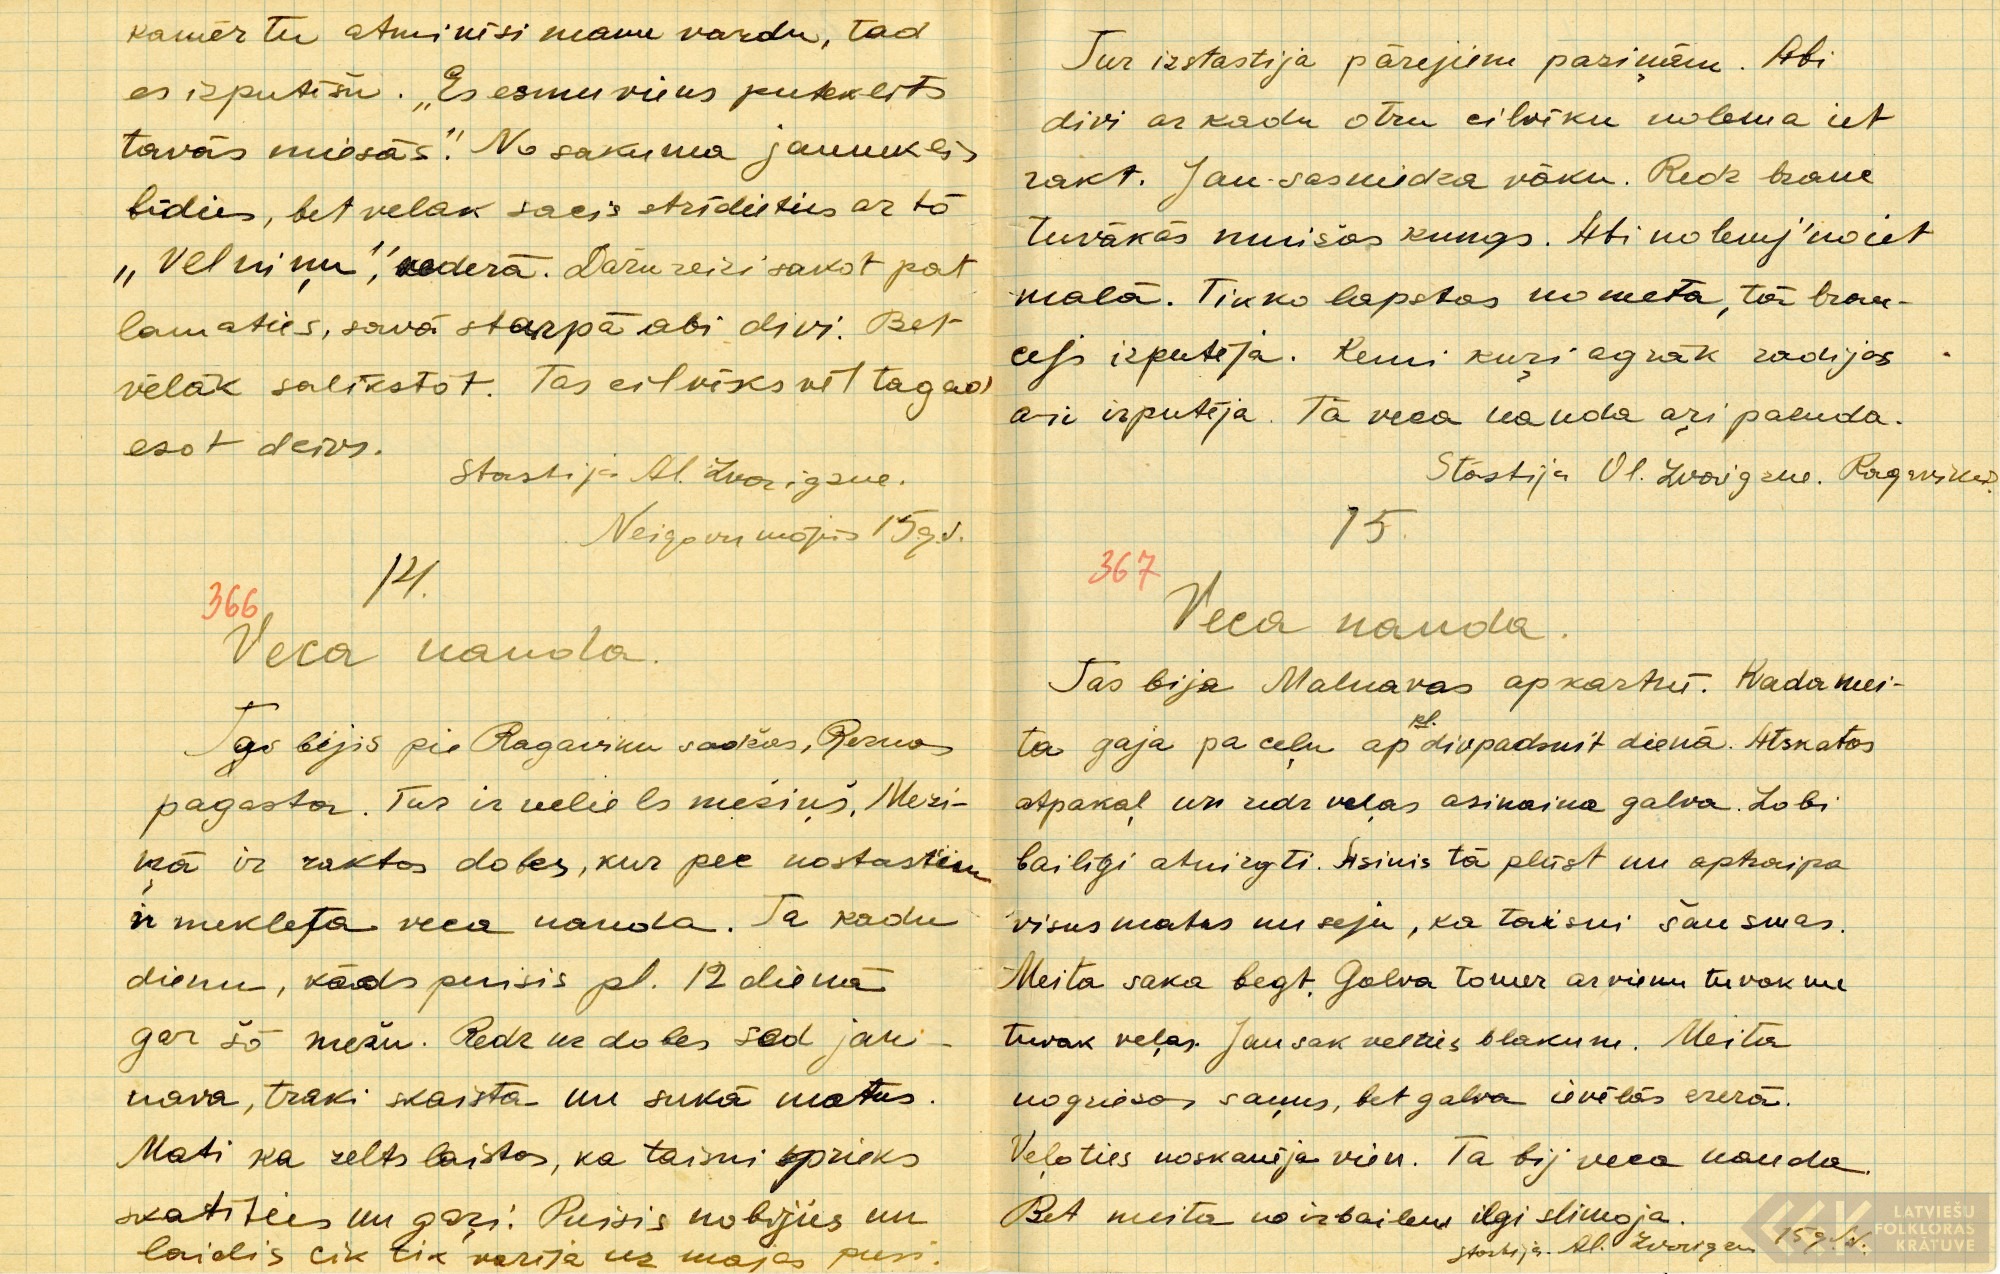 kamēr tu atminēsi manu vardu, tad
es izputēšu. „Es esmu viens puteklīts
tavās miesās". No sakuma jauneklis
bīdies, bet velak sacis strīdieties ar tō
„Velniņu", vederā. Dažu reizi sakot pat
lamaties, savā starpā abi divi. Bet
vēlāk salīkstot. Tas cilvēks vēl tagad
esot dzīvs.
Stastija Al. Zvaigzne.
Neigovu mājās 15 g.v.
14.
366
Veca nauda.
Tas bijis pie Ragaviku sadžas, Reznas
pagasta. Tur ir neliels mežiņš. Mezi-
ņā ir raktas dobes, kur pee nostastiem
ir mekleta veca nauda. Ta kadu
dienu, kāds puisis pl. 12 dienā
gar šō mežu. Redz uz dobes sēd jau-
nava, traki skaista un sukā matus.
Mati ka zelts laistas, ka taisni prieks
skatīties un gaŗi. Puisis nobijies un
laidis cik tik varēja uz majas pusi.
Tur izstastija pārejiem pariņām. Abi
divi ar kadu otru cilvēku nolema iet
rakt. Jau sasniedza vāku. Redz brauc
tuvākās muižas kungs. Abi nolemj noiet
malā. Tikko lapstas nometa, tā brau-
cējs izputēja. Kemi kuŗi agrāk radijas
a-ii izputēja. Tā veca nauda aŗi pazuda.
Stāstija Vl. Zvaigzne. Ragaviku
15.
367
Veca nauda.
Tas bija Malnavas apkartnē. Kada mei-
ta gaja pa ceļu ap pl. divpadsmit dienā. Atskatas
atpakaļ un redz veļas asinaina galva. Zobi
bailīgi atņirgti. Asinis tā plūst un aptraipa
visus matus un seju, ka taisni šausmas.
Meita saka begt. Galva tomer arvienu tuvak un
tuvak veļas. Jau sak velties blakum. Meita
nogriezas saņus, bet galva ievēlās ezerā.
Veļoties noskanēja vien. Ta bij veca nauda.
Bet meita no izbailem ilgi slimoja.
Stastija Al. Zvaigzne 15 g.v.
LATVIEŠU
FOLKLORAS
KRĀTUVE